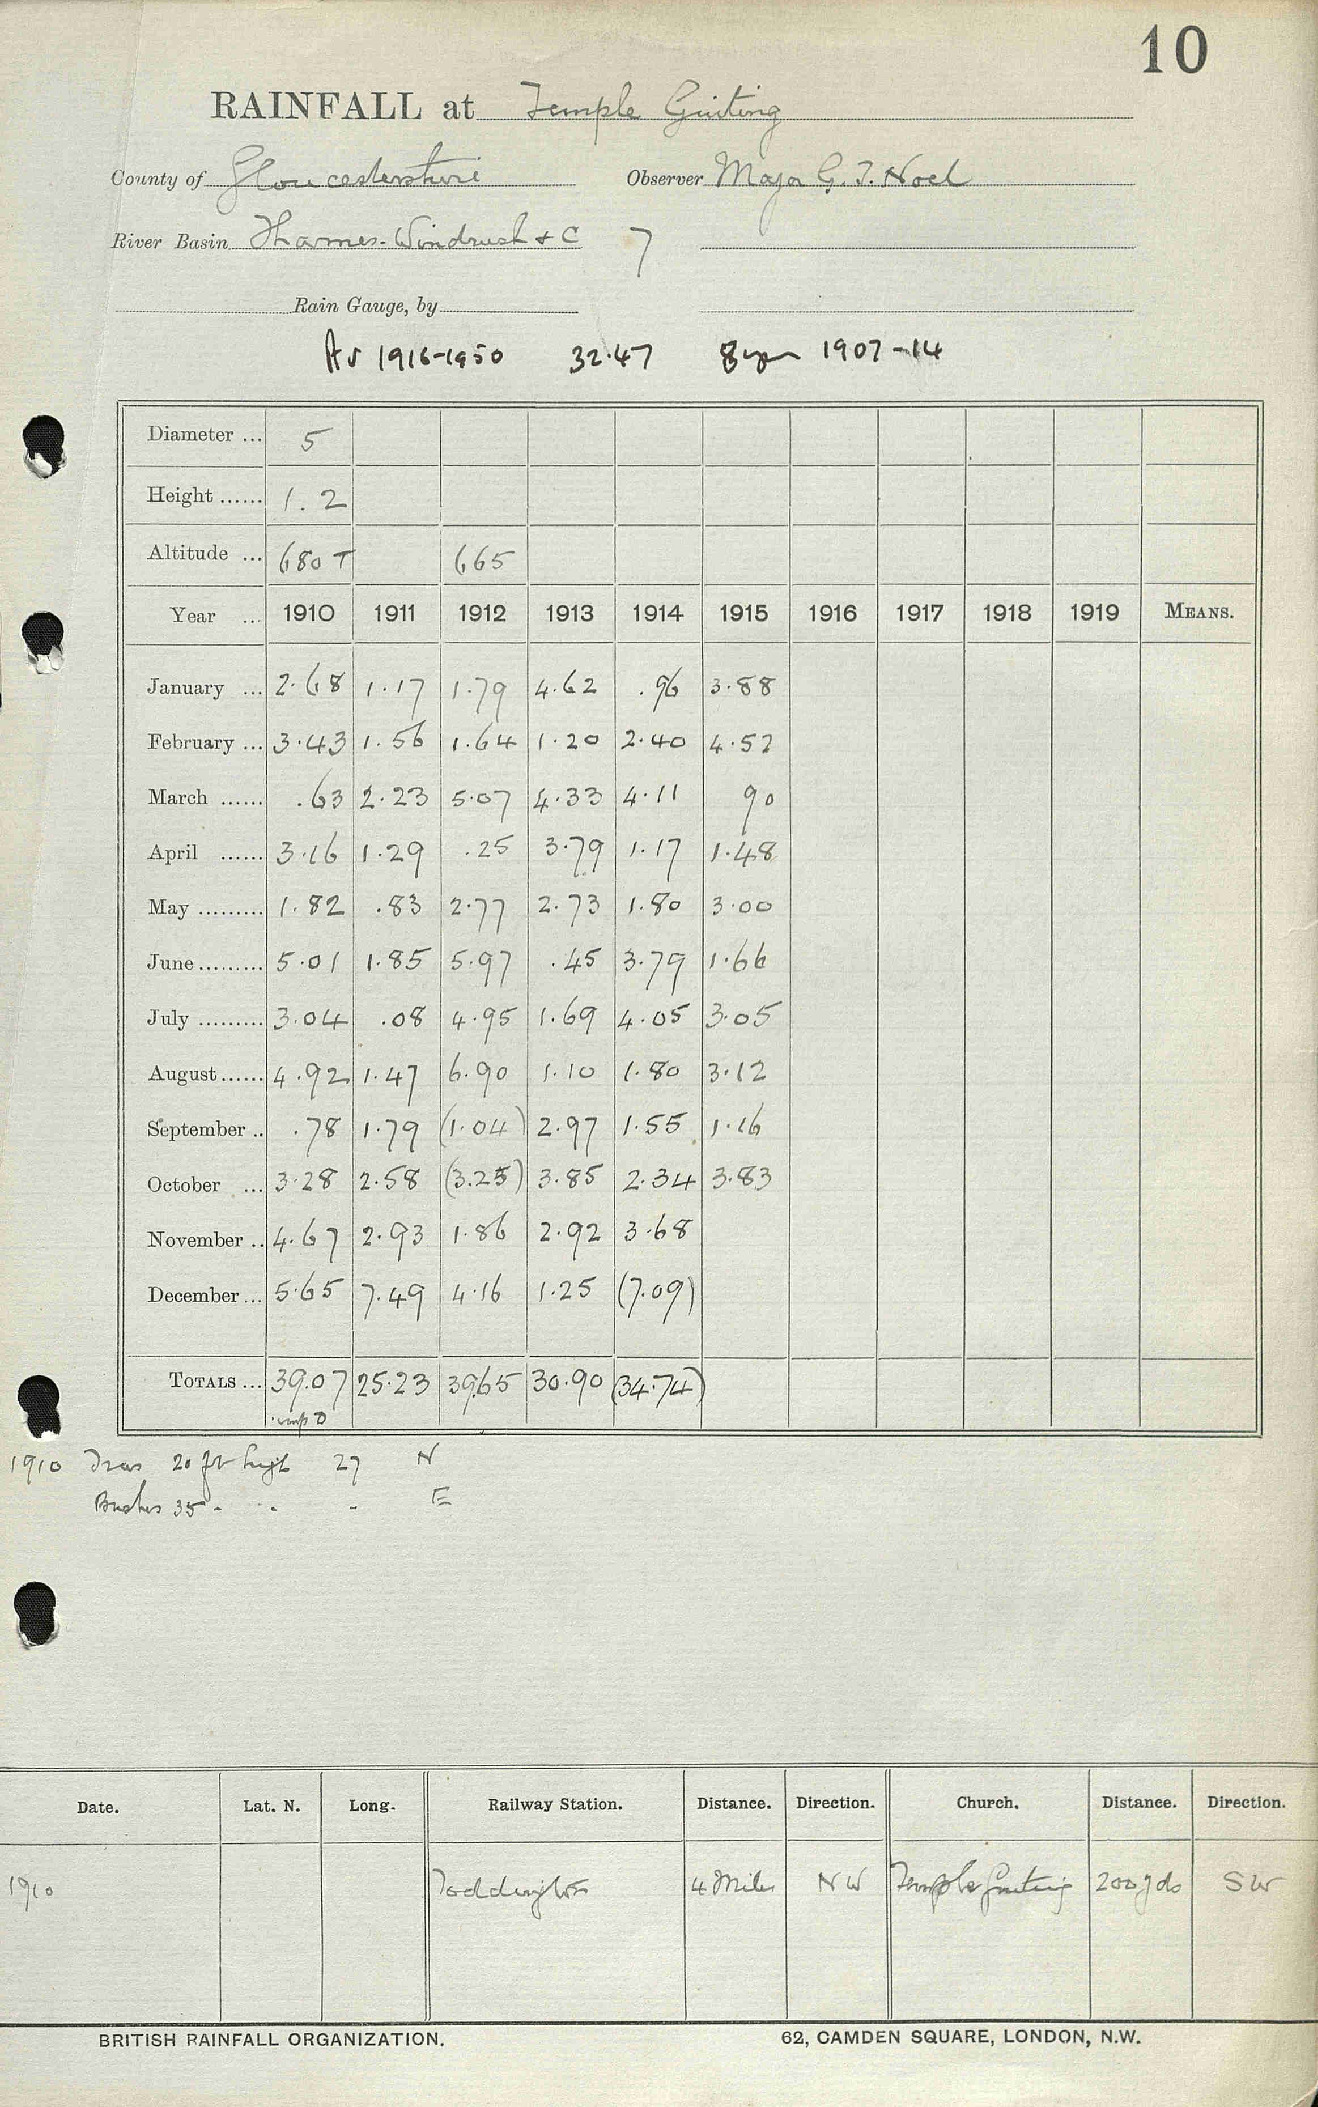 10
RAINFALL at Temple Guiting
County of Gloucestershire Observer Major G. J. Noel
River Basin Thames-Windrush &c 7
Rain Gauge, by
Av 1916-1950 32.47 8 yrs 1907-14
Diameter ... 5
Height ...... 1.2
Altitude ... 680 T 665
Year ... 1910 1911 1912 1913 1914 1915 1916 1917 1918 1919 MEANS.
January ... 2.68 1.17 1.79 4.62 .96 3.88
February ... 3.43 1.56 1.64 1.20 2.40 4.52
March ...... .63 2.23 5.07 4.33 4.11 90
April ...... 3.16 1.29 .25 3.79 1.17 1.48
May ......... 1.82 .83 2.77 2.73 1.80 3.00
June ......... 5.01 1.85 5.97 .45 3.79 1.66
July ......... 3.04 .08 4.95 1.69 4.05 3.05
August ...... 4.92 1.47 6.90 1.10 1.80 3.12
September .. .78 1.79 (1.04) 2.97 1.55 1.16
October ... 3.28 2.58 (3.25) 3.85 2.34 3.83
November .. 4.67 2.93 1.86 2.92 3.68
December ... 5.65 7.49 4.16 1.25 (7.09)
TOTALS ... 39.07 25.23 39.65 30.90 (34.74)
1910 Trees 20 ft high 27 N
Bushes 35 - .. - E
Date. Lat. N. Long. Railway Station. Distance. Direction. Church. Distance. Direction.
1910 Toddington 4 Miles NW Temple Guiting 200 yds SW
BRITISH RAINFALL ORGANIZATION. 62, CAMDEN SQUARE, LONDON, N.W.